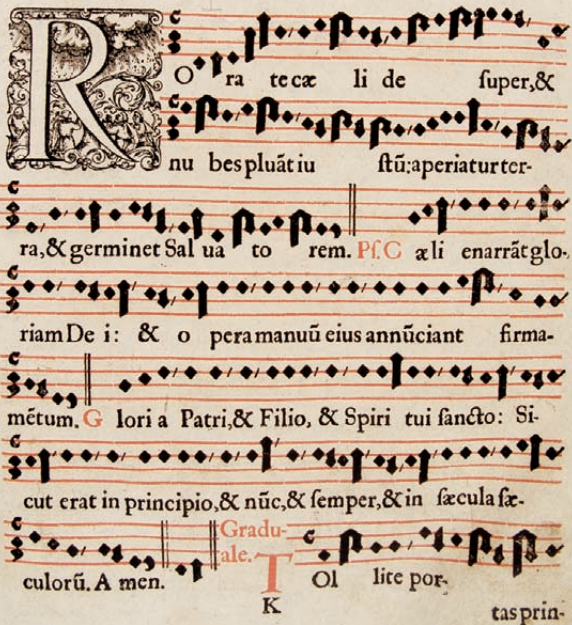 RO ra te cæ li de super,&
nu bes pluāt iu stū:aperiatur ter-
ra,& germinet Sal ua to rem. Ps. C æli enarrāt glo-
riam De i: & o pera manuū eius annūciant firma-
mētum. G lori a Patri,& Filio, & Spiri tui sancto: Si-
cut erat in principio,& nūc,& semper,& in sæcula sæ-
culorū. A men. Gradu-
ale. T Ol lite por-
K tas prin-